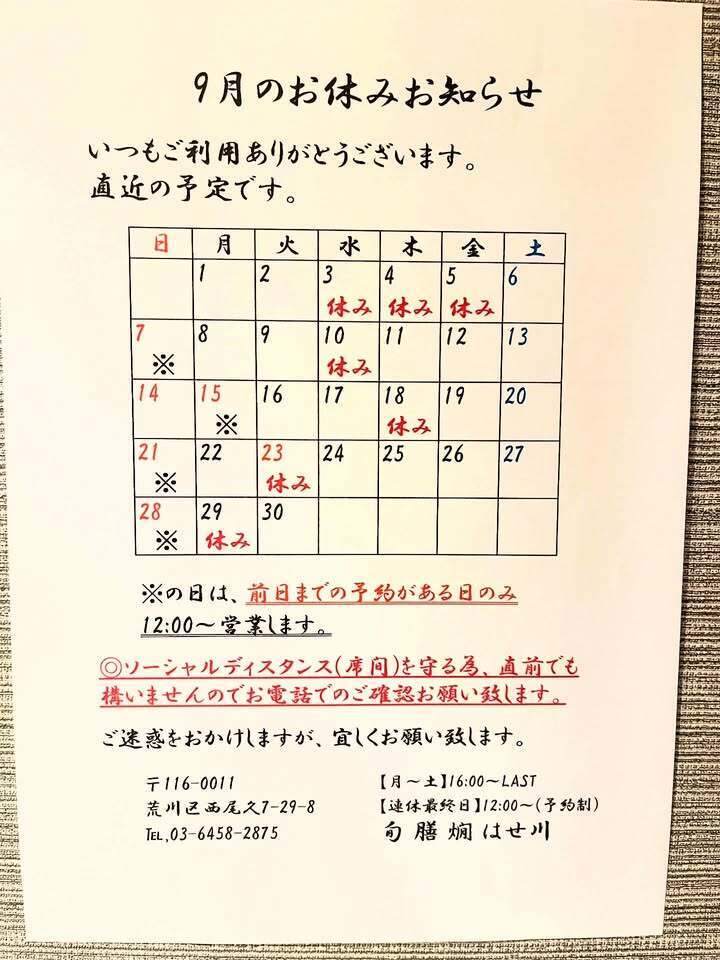 9月のお休みお知らせ
いつもご利用ありがとうございます。
直近の予定です。
日 月 火 水 木 金 土
1 2 3 4 5 6
休み 休み 休み
7 8 9 10 11 12 13
※ 休み
14 15 16 17 18 19 20
※ 休み
21 22 23 24 25 26 27
※ 休み
28 29 30
※ 休み
※の日は、前日までの予約がある日のみ
12:00～営業します。
◎ソーシャルディスタンス(席間)を守る為、直前でも
構いませんのでお電話でのご確認お願い致します。
ご迷惑をおかけしますが、宜しくお願い致します。
〒116-0011
荒川区西尾久7-29-8
TEL,03-6458-2875
【月～土】16:00～LAST
【連休最終日】12:00～(予約制)
旬膳燗はせ川